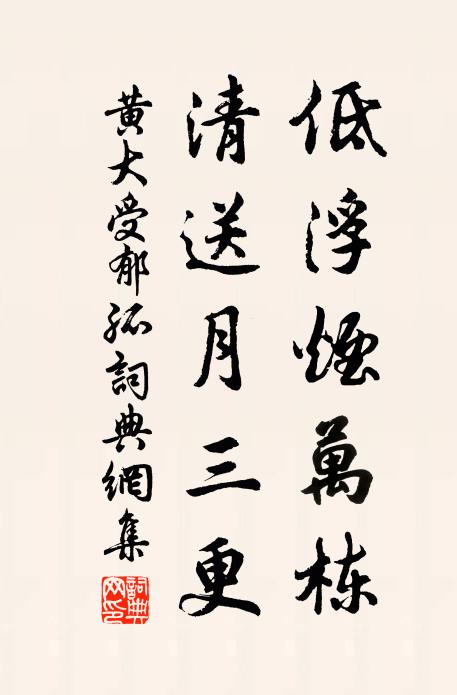 低浮煙萬棟
清送月三更
黄大受郁孤詞典網集
詞典網印